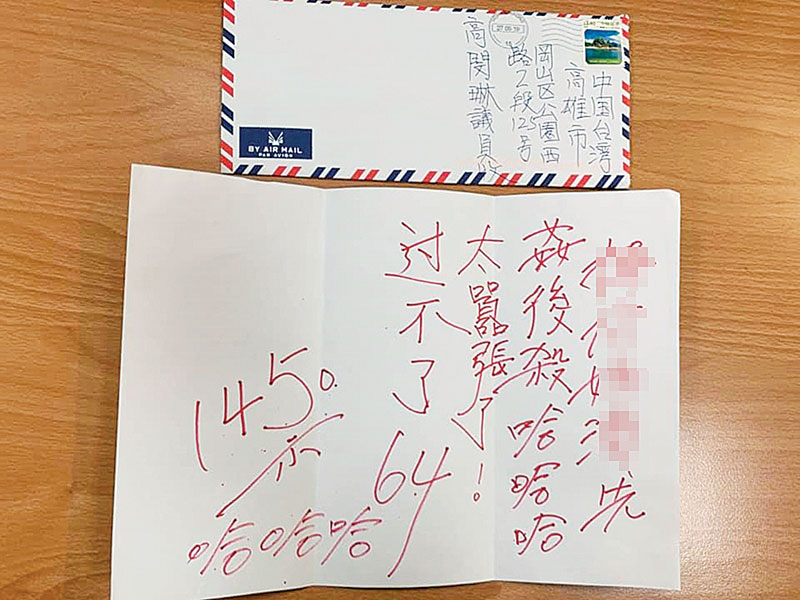 中国台湾
高雄市
岡山区公園西
路2段125号
高閔琳議員收
BY AIR MAIL
PAR AVION
先
姦後殺哈哈哈
太囂張了！
过不了64
1450
哈哈哈